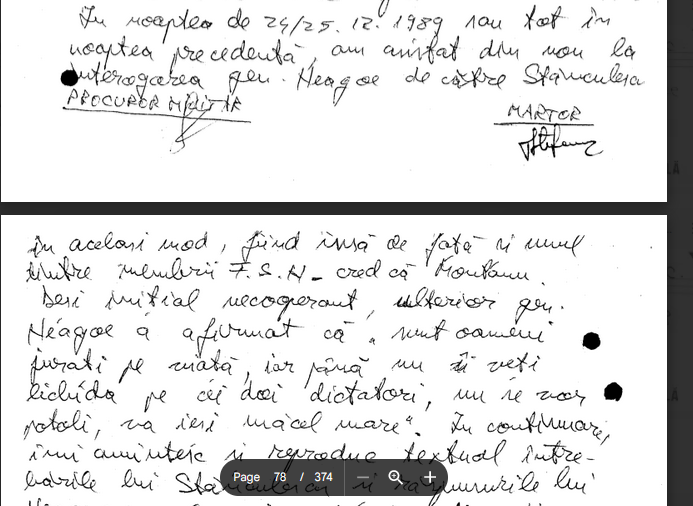 În noaptea de 24/25.12.1989 sau tot în
noaptea precedentă, am asistat din nou la
interogarea gen. Neagoe de către Stănculescu
PROCUROR MILITAR
MARTOR
în același mod, fiind însă de față și unul
dintre membrii F.S.N - cred că Montanu.
Deși inițial necoperant, ulterior gen.
Neagoe a afirmat că „sunt oameni
jurați pe viață, iar până nu îi veți
lichida pe cei doi dictatori, nu se vor
potoli, va ieși măcel mare". În continuare,
îmi amintesc și reproduc textual între-
bările lui Stănculescu și răspunsurile lui
Page 78 / 374